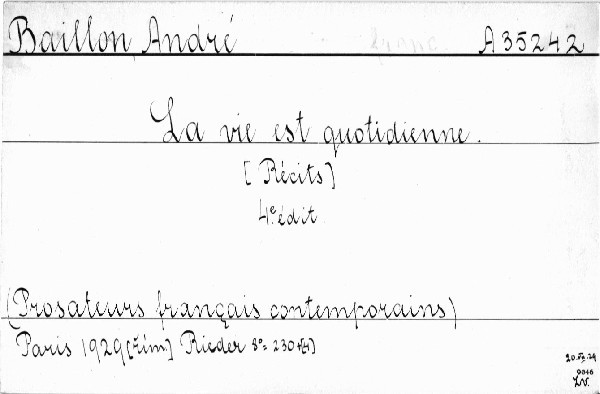 Baillon André A 35242
La vie est quotidienne.
[Récits]
4.e édit
(Prosateurs français contemporains)
Paris 1929 Rieder 8°= 230
9046